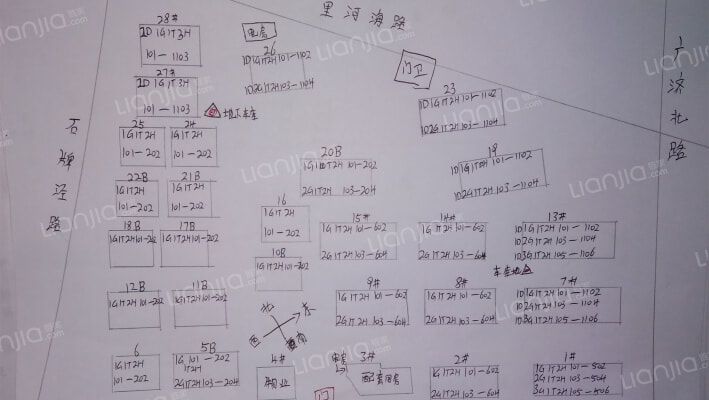 里河海路
广济北路
石牌泾路
28#
1D 1G1T3H
101-1103
电房
26
1D1G1T2H 101-1102
1D2G1T2H103-1104
门卫
27#
1D 1G1T3H
101-1103
地下车库
23
1D1G1T2H101-1102
1D2G1T2H103-1104
25
1G1T2H
101-202
24
1G1T2H
101-202
20B
2G1T2H 103-204
19
1D2G1T2H103-1104
22B
1G1T2H
101-202
21B
1G1T2H
101-202
16
1G1T2H
101-202
15#
1G1T2H 101-602
2G1T2H103-604
14#
1G1T2H 101-602
2G1T2H103-604
13#
1D1G1T2H 101-1102
1D2G1T2H103-1104
1D3G1T2H105-1106
18B
1G1T2H101-202
17B
1G1T2H101-202
10B
1G1T2H101-202
车库地
12B
1G1T2H101-202
11B
1G1T2H101-202
9#
1G1T2H 101-602
2G1T2H103-604
8#
1G1T2H101-602
2G1T2H 103-604
7#
1D1G1T2H 101-1102
1D2G1T2H103-1104
1D3G1T2H105-1106
北
东
西
南
6
1G1T2H
101-202
5B
1G 101-202
1T2H
2G1T2H103-204
4#
物业
电房
3#
配套用房
2#
1G1T2H101-602
2G1T2H103-604
1#
1G1T2H101-502
2G1T2H103-504
3G1T2H105-506
门
Lianjia 链家
.com